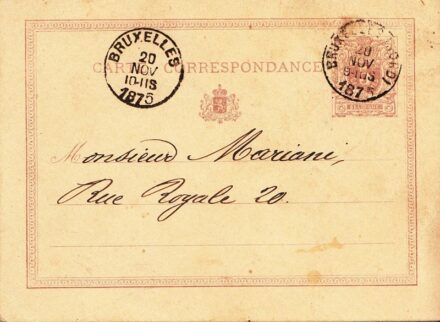 BRUXELLES
20
NOV
10-11S
1875
CARTE CORRESPONDANCE
BRUXELLES
20
NOV
1875
BELGIQUE
Monsieur Mariani,
Rue Royale 20.